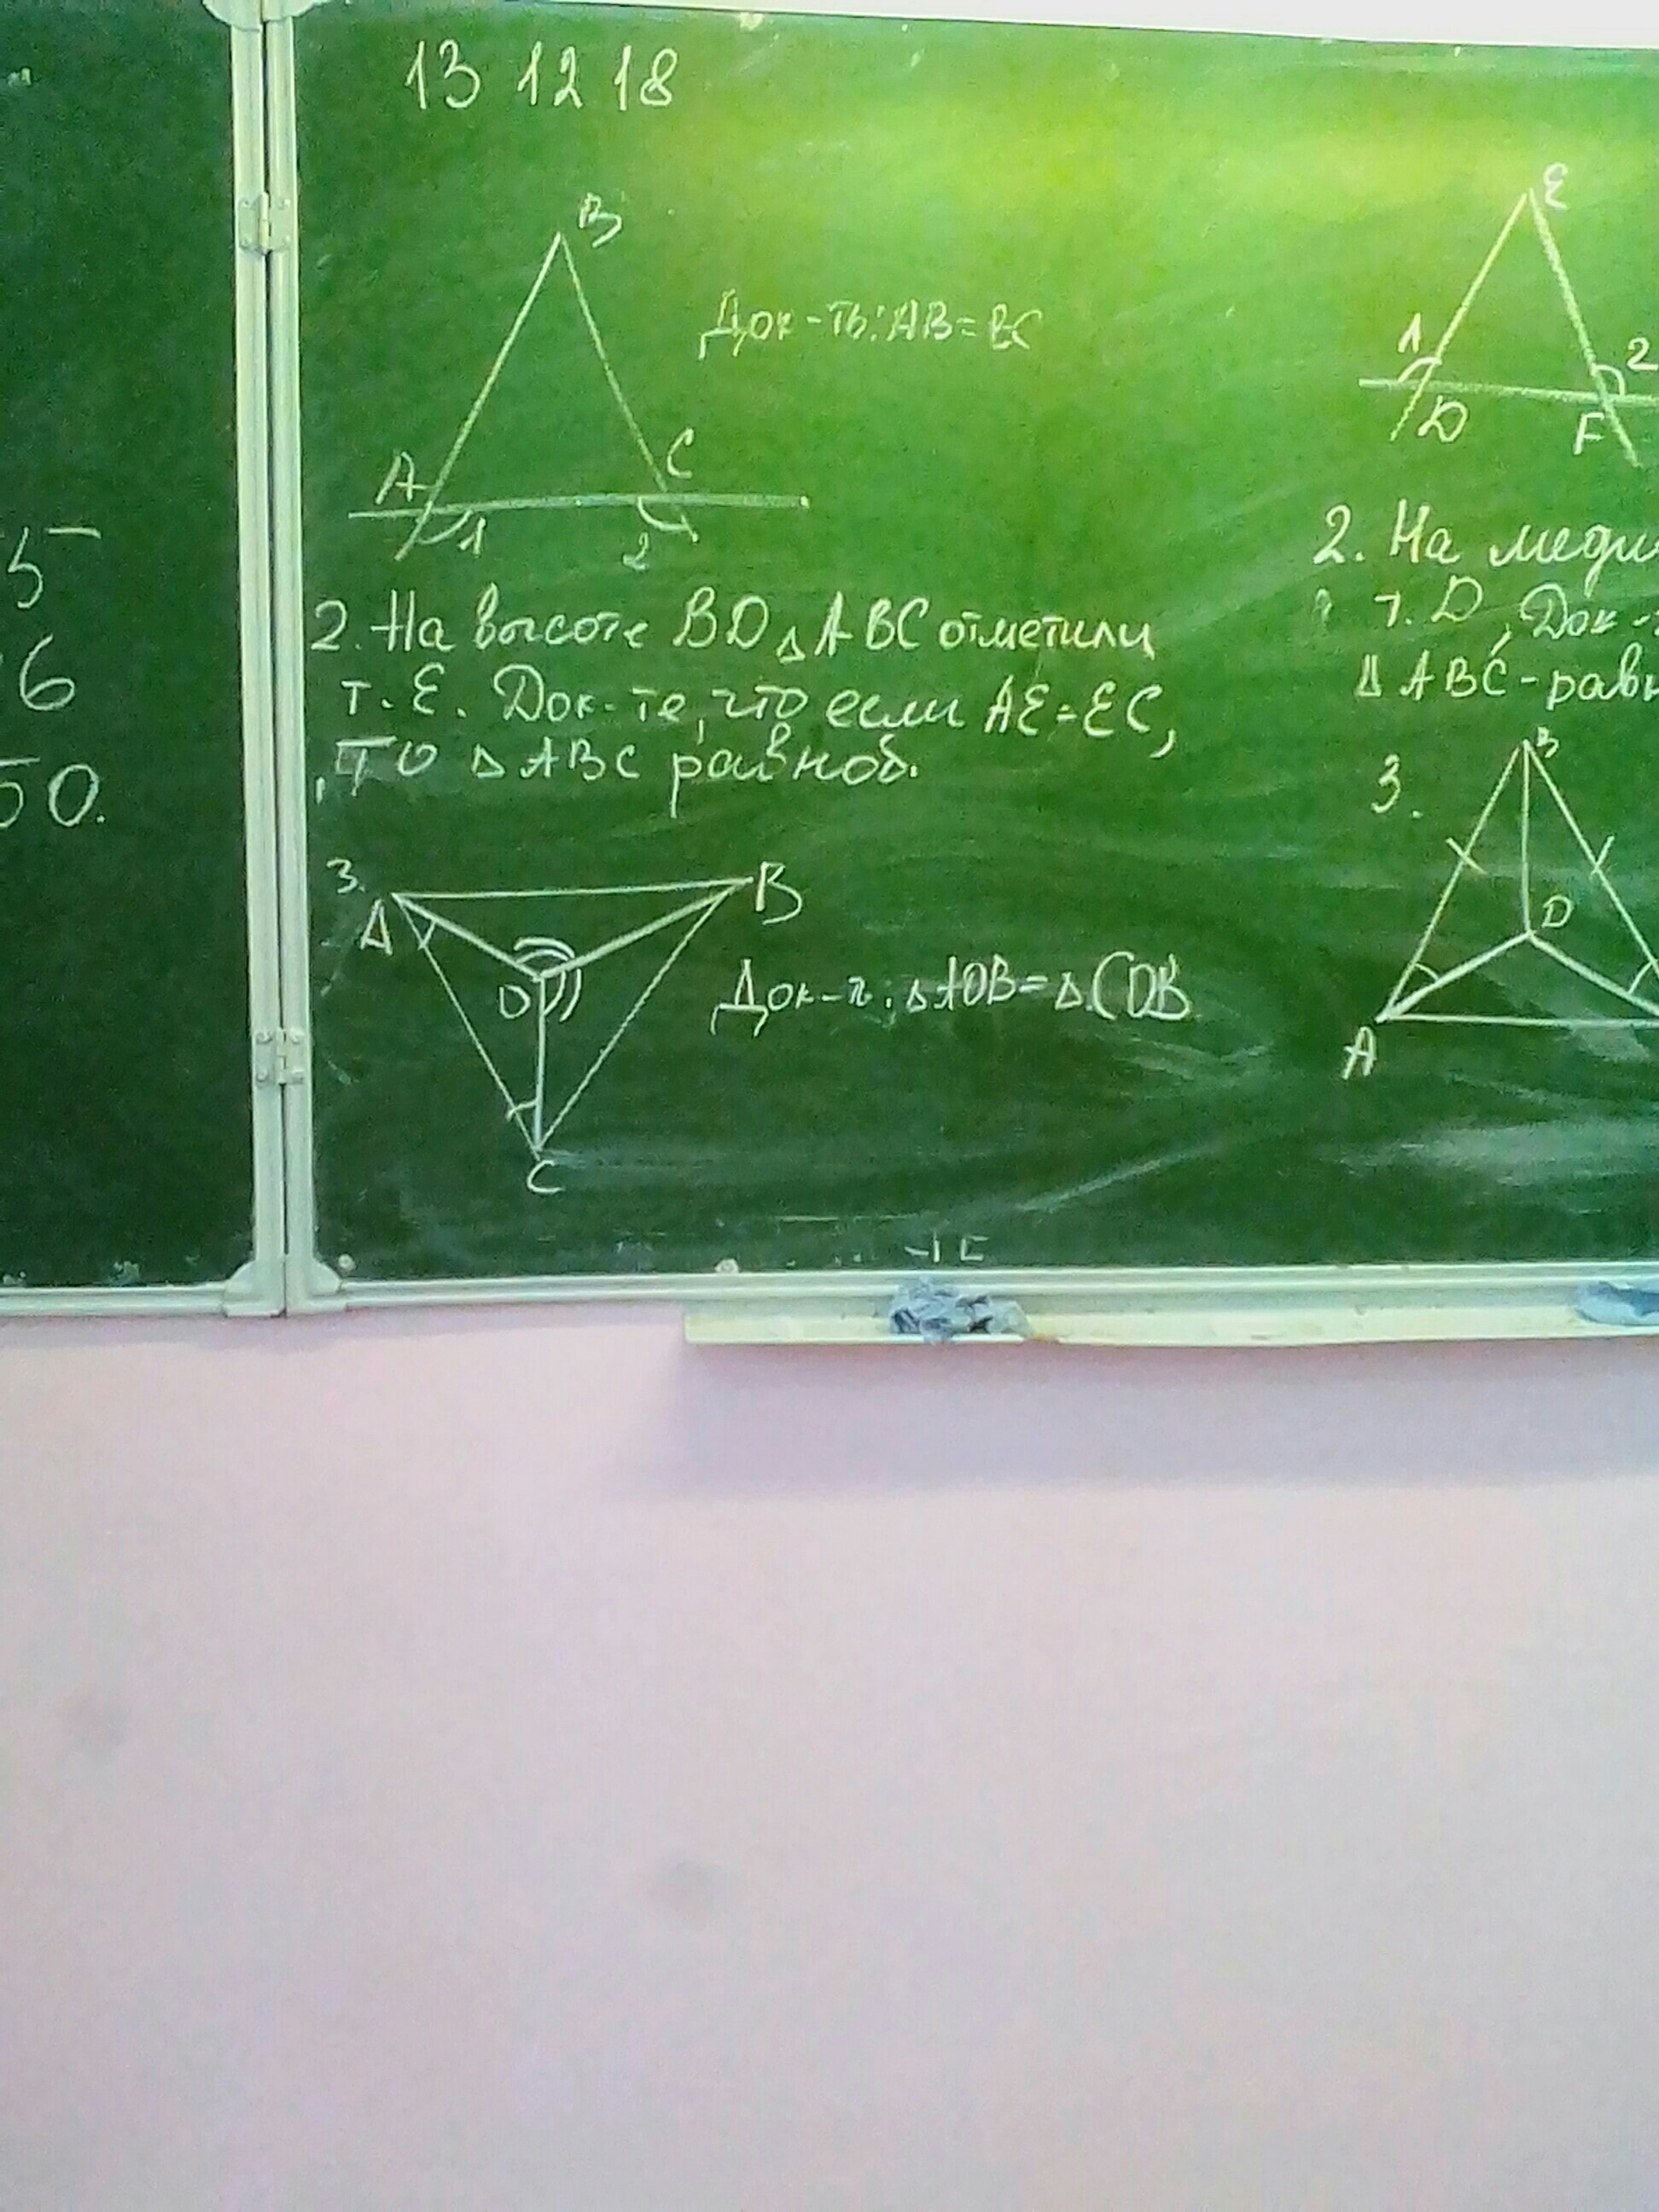 13 12 18
B
Док-ть: AB = BC
A
C
1
2
2. На высоте BD △ ABC отметили
т. E. Док-те, что если AE = EC,
то △ ABC равноб.
3.
A
B
O
Док-ть: △ AOB = △ COB
C
E
1
2
D
F
2. На меди
т. D, Док-
△ ABC - равн
3.
B
D
A
5
6
50.